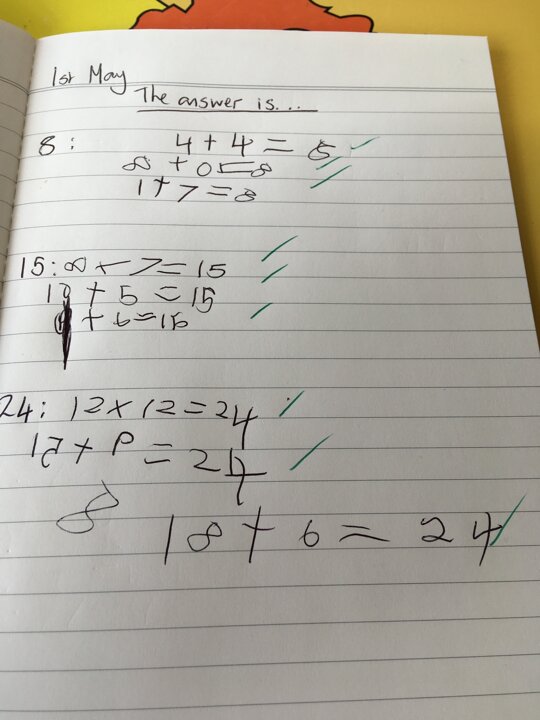 1st May
The answer is...
8: 4 + 4 = 8
8 + 0 = 8
1 + 7 = 8
15: 8 + 7 = 15
10 + 5 = 15
+ 6 = 15
24: 12 + 12 = 24
15 + 9 = 24
8
18 + 6 = 24